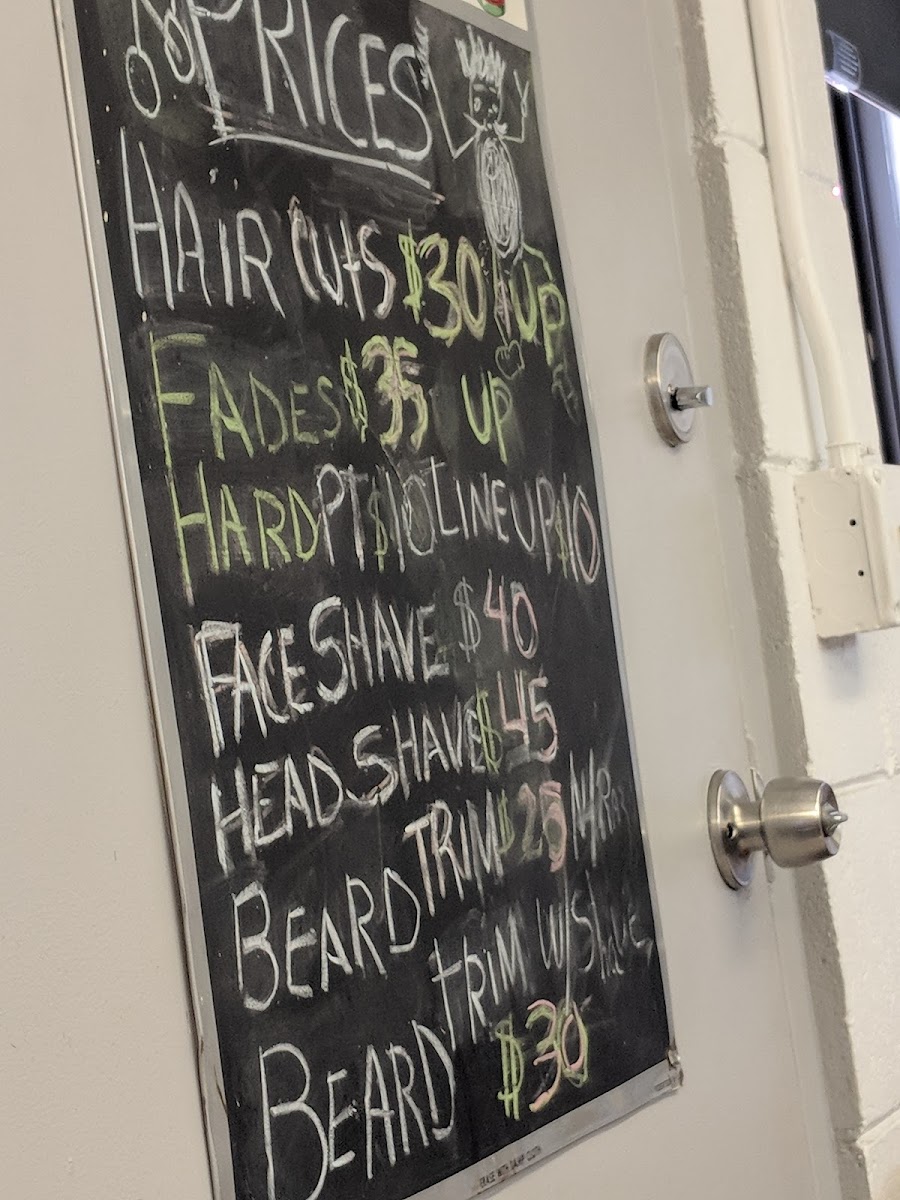 PRICES
HAIR CUTS $30 & UP
FADES $35 UP
HARD PT $10 LINEUP $10
FACE SHAVE $40
HEAD SHAVE $45
BEARD TRIM $25
BEARD TRIM W/Shave
$30
ERASE WITH DAMP CLOTH